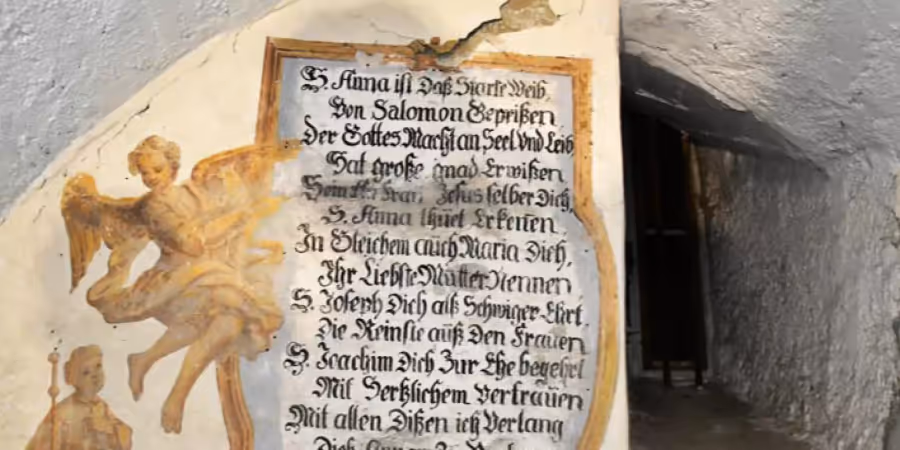 S. Anna ist Daß Starke Weib,
Von Salomon Geprißen
Der Gottes Macht an Seel Vnd Leib
Hat große gnad Erwißen
Jesus selber Dich,
S. Anna thuet Erkenen
In Gleichem auch Maria Dich,
Ihr Liebste Mutter Nennen
S. Joseph Dich alß Schwiger Ehrt,
Die Reinste auß Den Frauen
S. Joachim Dich Zur Ehe begehrt
Mit Hertzlichem Vertrauen
Mit allen Dißen ich Verlang
Dich